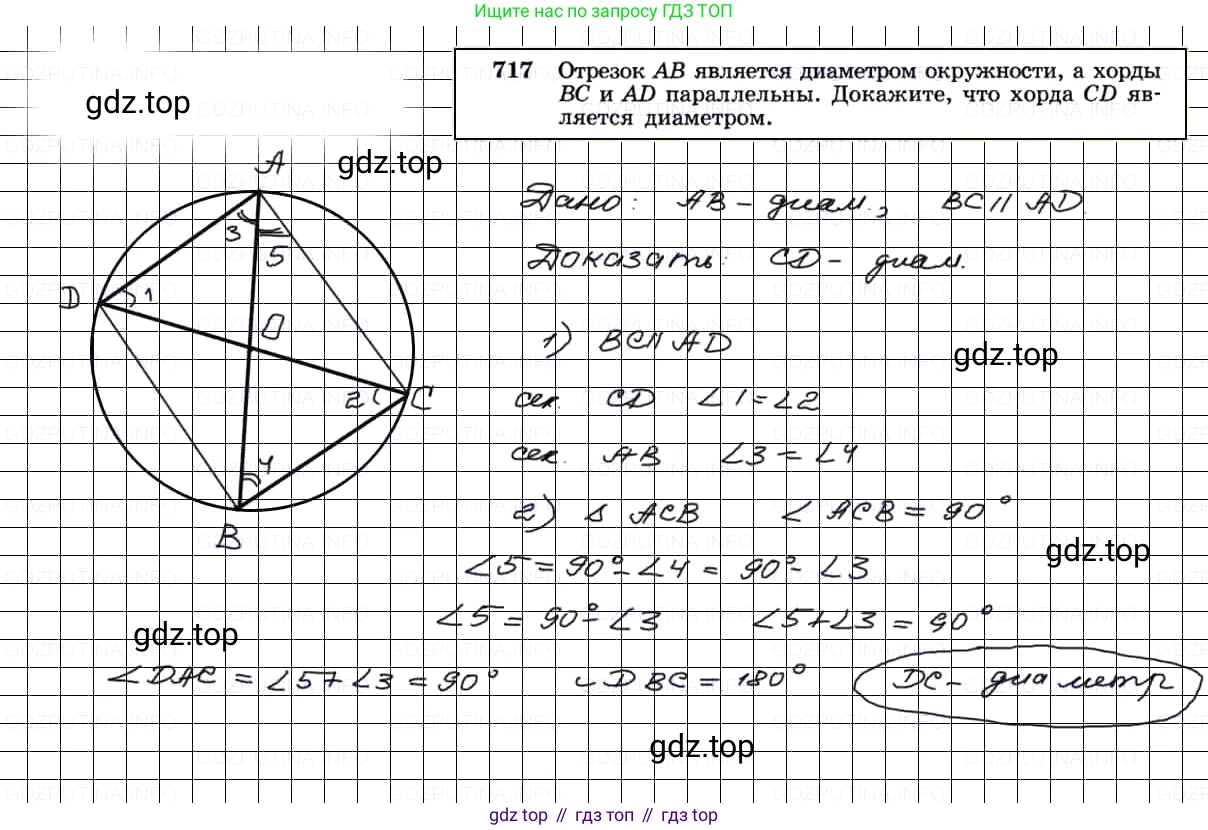 Ищите нас по запросу ГДЗ ТОП
717 Отрезок AB является диаметром окружности, а хорды
BC и AD параллельны. Докажите, что хорда CD яв-
ляется диаметром.
gdz.top
gdz.top
A
3
5
D
1
O
2
C
4
B
Дано: AB - диам., BC || AD.
Доказать: CD - диам.
1) BC || AD
gdz.top
сек. CD ∠1 = ∠2
сек. AB ∠3 = ∠4
2) Δ ACB ∠ACB = 90°
gdz.top
∠5 = 90° - ∠4 = 90° - ∠3
∠5 = 90° - ∠3 ∠5 + ∠3 = 90°
gdz.top
∠DAC = ∠5 + ∠3 = 90° ◡DBC = 180° DC - диаметр
gdz.top
gdz top // гдз топ // гдз top